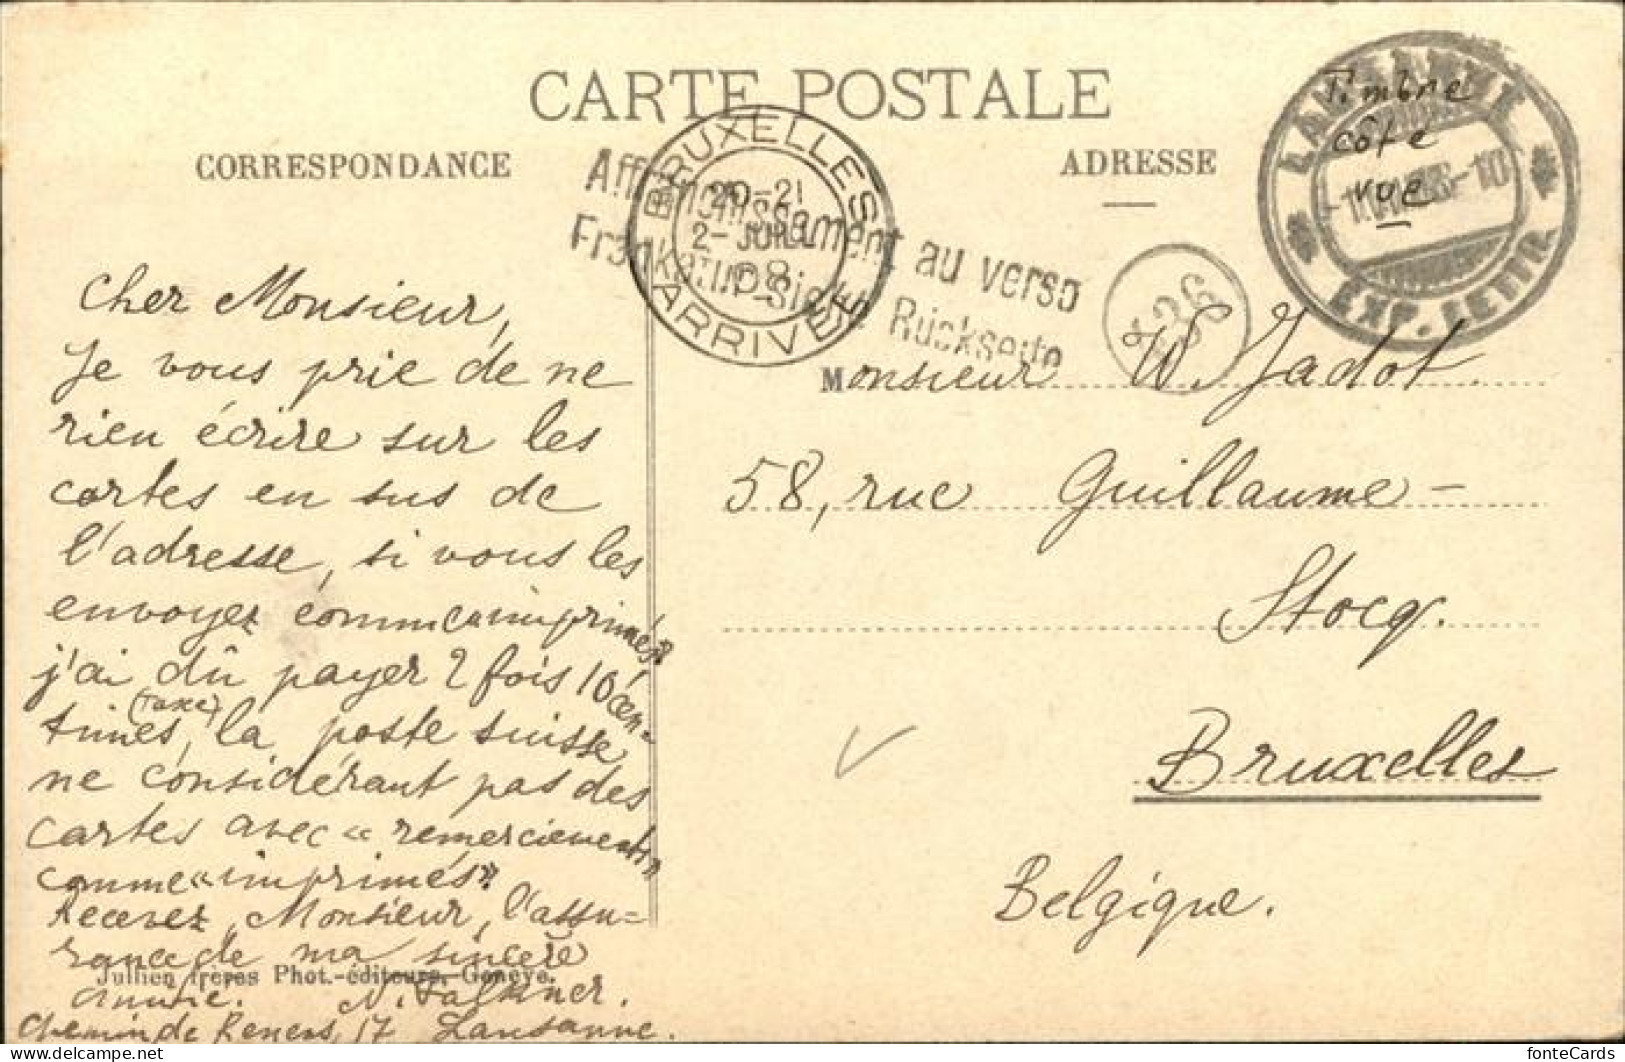 CARTE POSTALE
CORRESPONDANCE
ADRESSE
Affranchissement au verso
Frankatur siehe Rückseite
BRUXELLES
20-21
2-JUIL
08
ARRIVÉE
LAUSANNE
EXP. LETTR.
Timbre
côté
vue
Cher Monsieur,
Je vous prie de ne
rien écrire sur les
cartes en sus de
l'adresse, si vous les
envoyez comme «imprimés»
j'ai dû payer 2 fois 10 cen-
times (Taxe), la poste suisse
ne considérant pas des
cartes avec «remerciements»
comme «imprimés».
Recevez, Monsieur, l'assu=
rance de ma sincère
amitié. N. Falkner.
Chemin de Renens, 17 Lausanne.
Jullien frères Phot.-éditeurs, Genève.
Monsieur W. Jadot.
58, rue Guillaume-
Stocq.
Bruxelles
Belgique.
fonteCards
delcampe.net